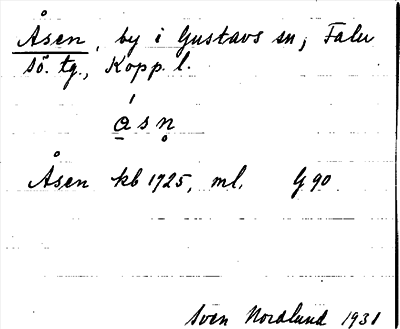 Åsen, by i Gustavs sn, Falu
sö. tg., Kopp. l.
ǻsn̥
Åsen kb 1725, ml. G 90
Sven Nordlund 1931